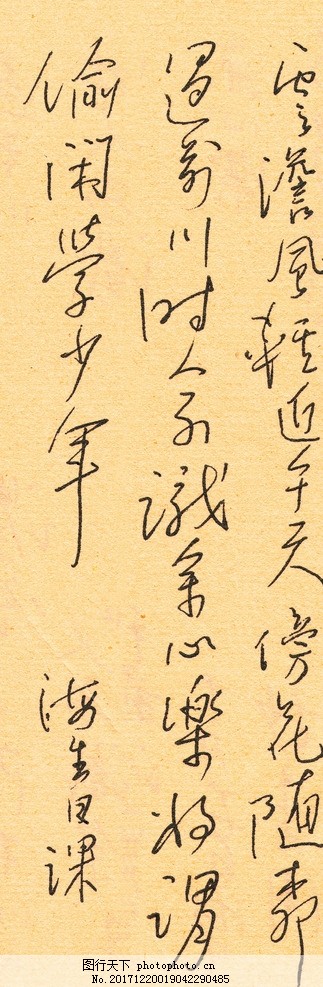 雲澹風輕近午天傍花随柳
過前川时人不識余心樂将謂
偷閑學少年 海生日課
图行天下 photophoto.cn
No.20171220019042290485